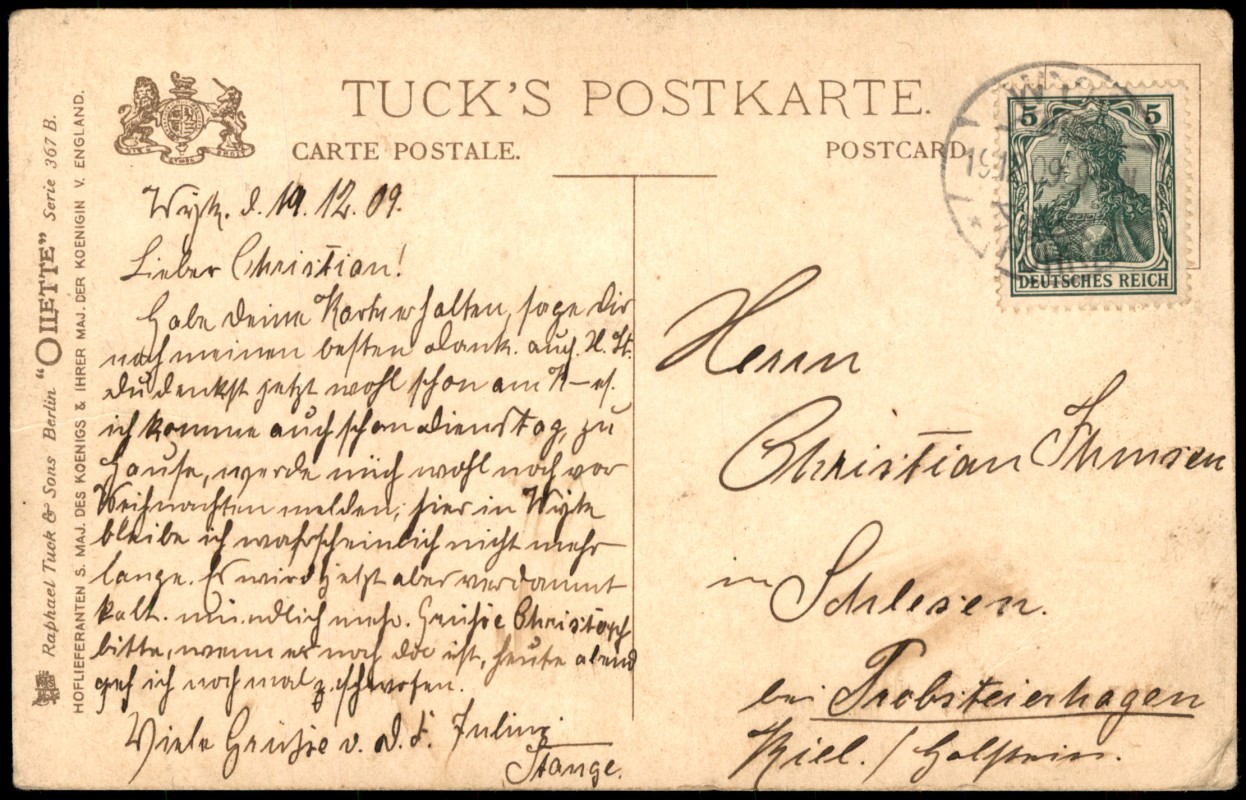 TUCK'S POSTKARTE.
CARTE POSTALE.
POSTCARD
Raphael Tuck & Sons Berlin "OILETTE" Serie 367 B.
HOFLIEFERANTEN S. MAJ. DES KOENIGS & IHRER MAJ. DER KOENIGIN V. ENGLAND.
5 5
DEUTSCHES REICH
Wyk. d. 19. 12. 09.
Lieber Christian!
Habe deine Karte erhalten, sage dir
noch meinen besten Dank. auch
du denkst jetzt wohl schon am
ich komme auch schon Dienstag, zu
Hause, werde mich wohl noch vor
Weihnachten melden, hier in Wyk
bleibe ich wahrscheinlich nicht mehr
lange. Es wird jetzt aber verdammt
kalt. mündlich mehr. Grüße Christoph
bitte, wenn er noch da ist, heute abend
geh ich noch mal z. schwofen.
Viele Grüße v. d. f. Julius
Stange.
Herrn
Christian
in Schlesen.
bei Probsteierhagen
Kiel. / Holstein.